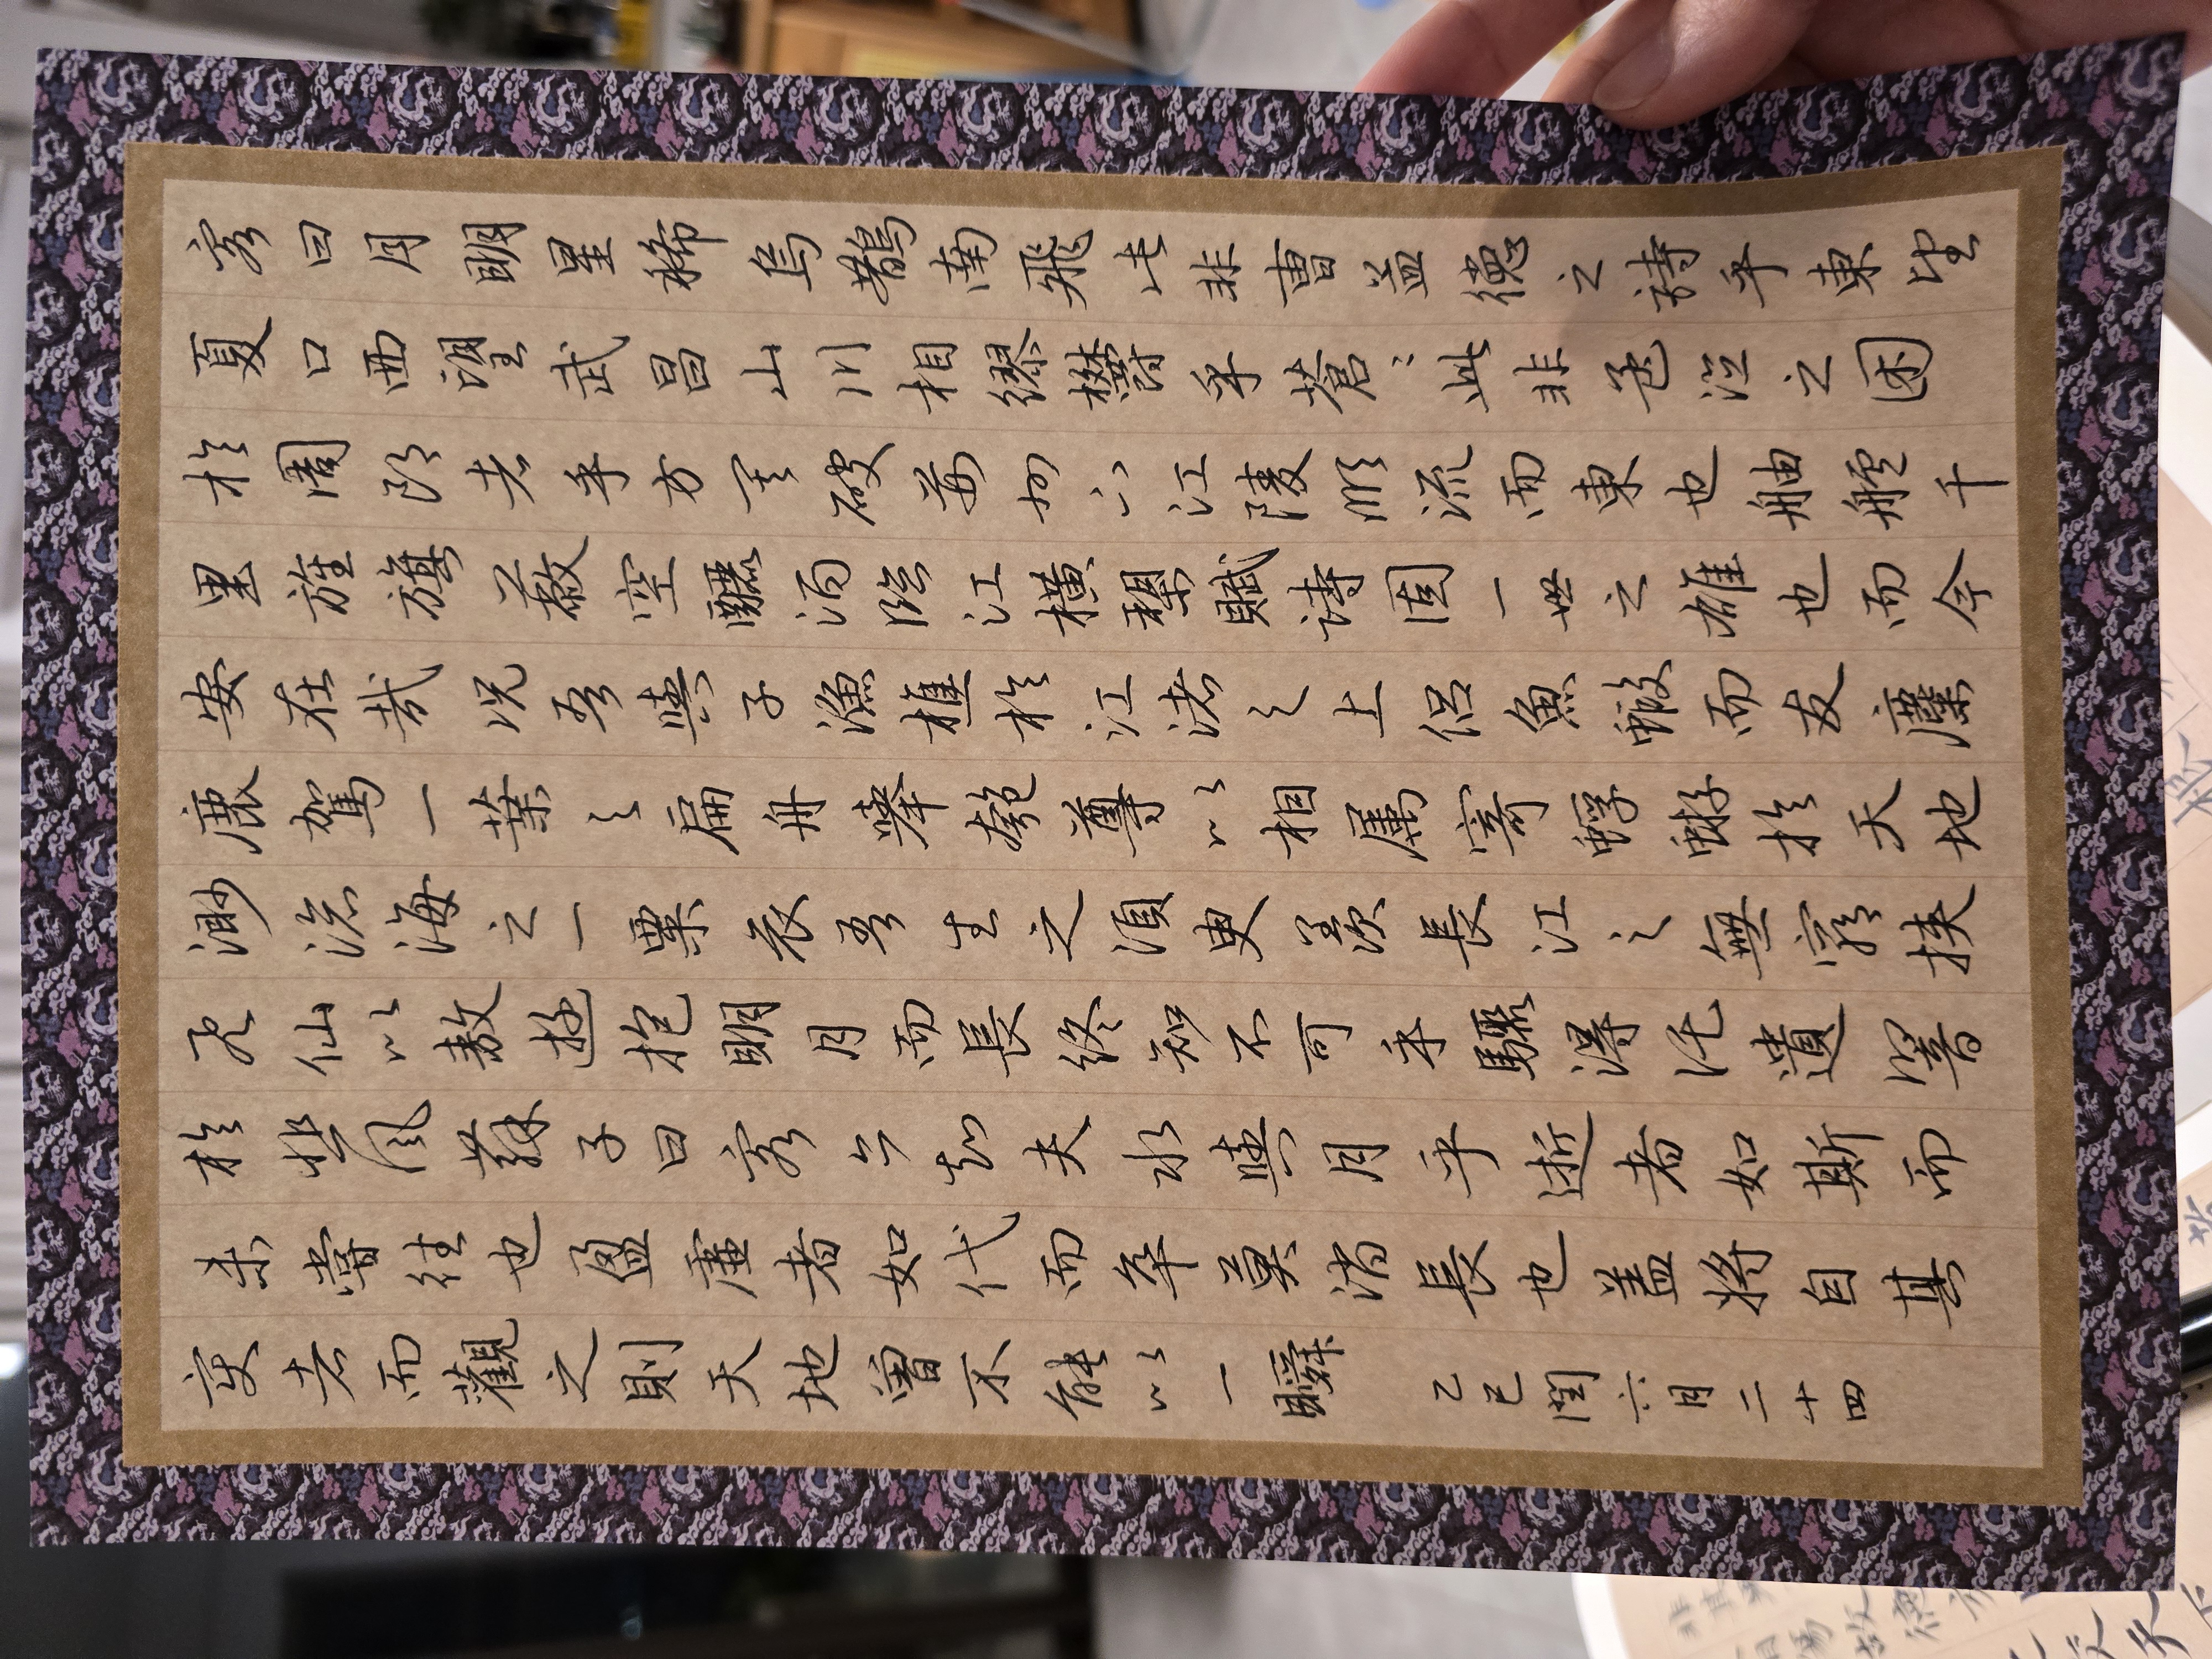 客曰月明星稀烏鵲南飛此非曹孟德之詩乎東望
夏口西望武昌山川相繆欝乎蒼〻此非孟德之困
於周郎者乎方其破荊州下江陵順流而東也舳艫千
里旌旗蔽空釃酒臨江橫槊賦詩固一世之雄也而今
安在哉況吾與子漁樵於江渚之上侶魚蝦而友麋
鹿駕一葉之扁舟舉匏尊以相屬寄蜉蝣於天地
渺滄海之一粟哀吾生之須臾羨長江之無窮挾
飛仙以敖遊抱明月而長終知不可乎驟得託遺響
於悲風蘇子曰客亦知夫水與月乎逝者如斯而
未嘗往也盈虛者如代而卒莫消長也蓋將自其
變者而觀之則天地曾不能以一瞬 乙巳閏六月二十四